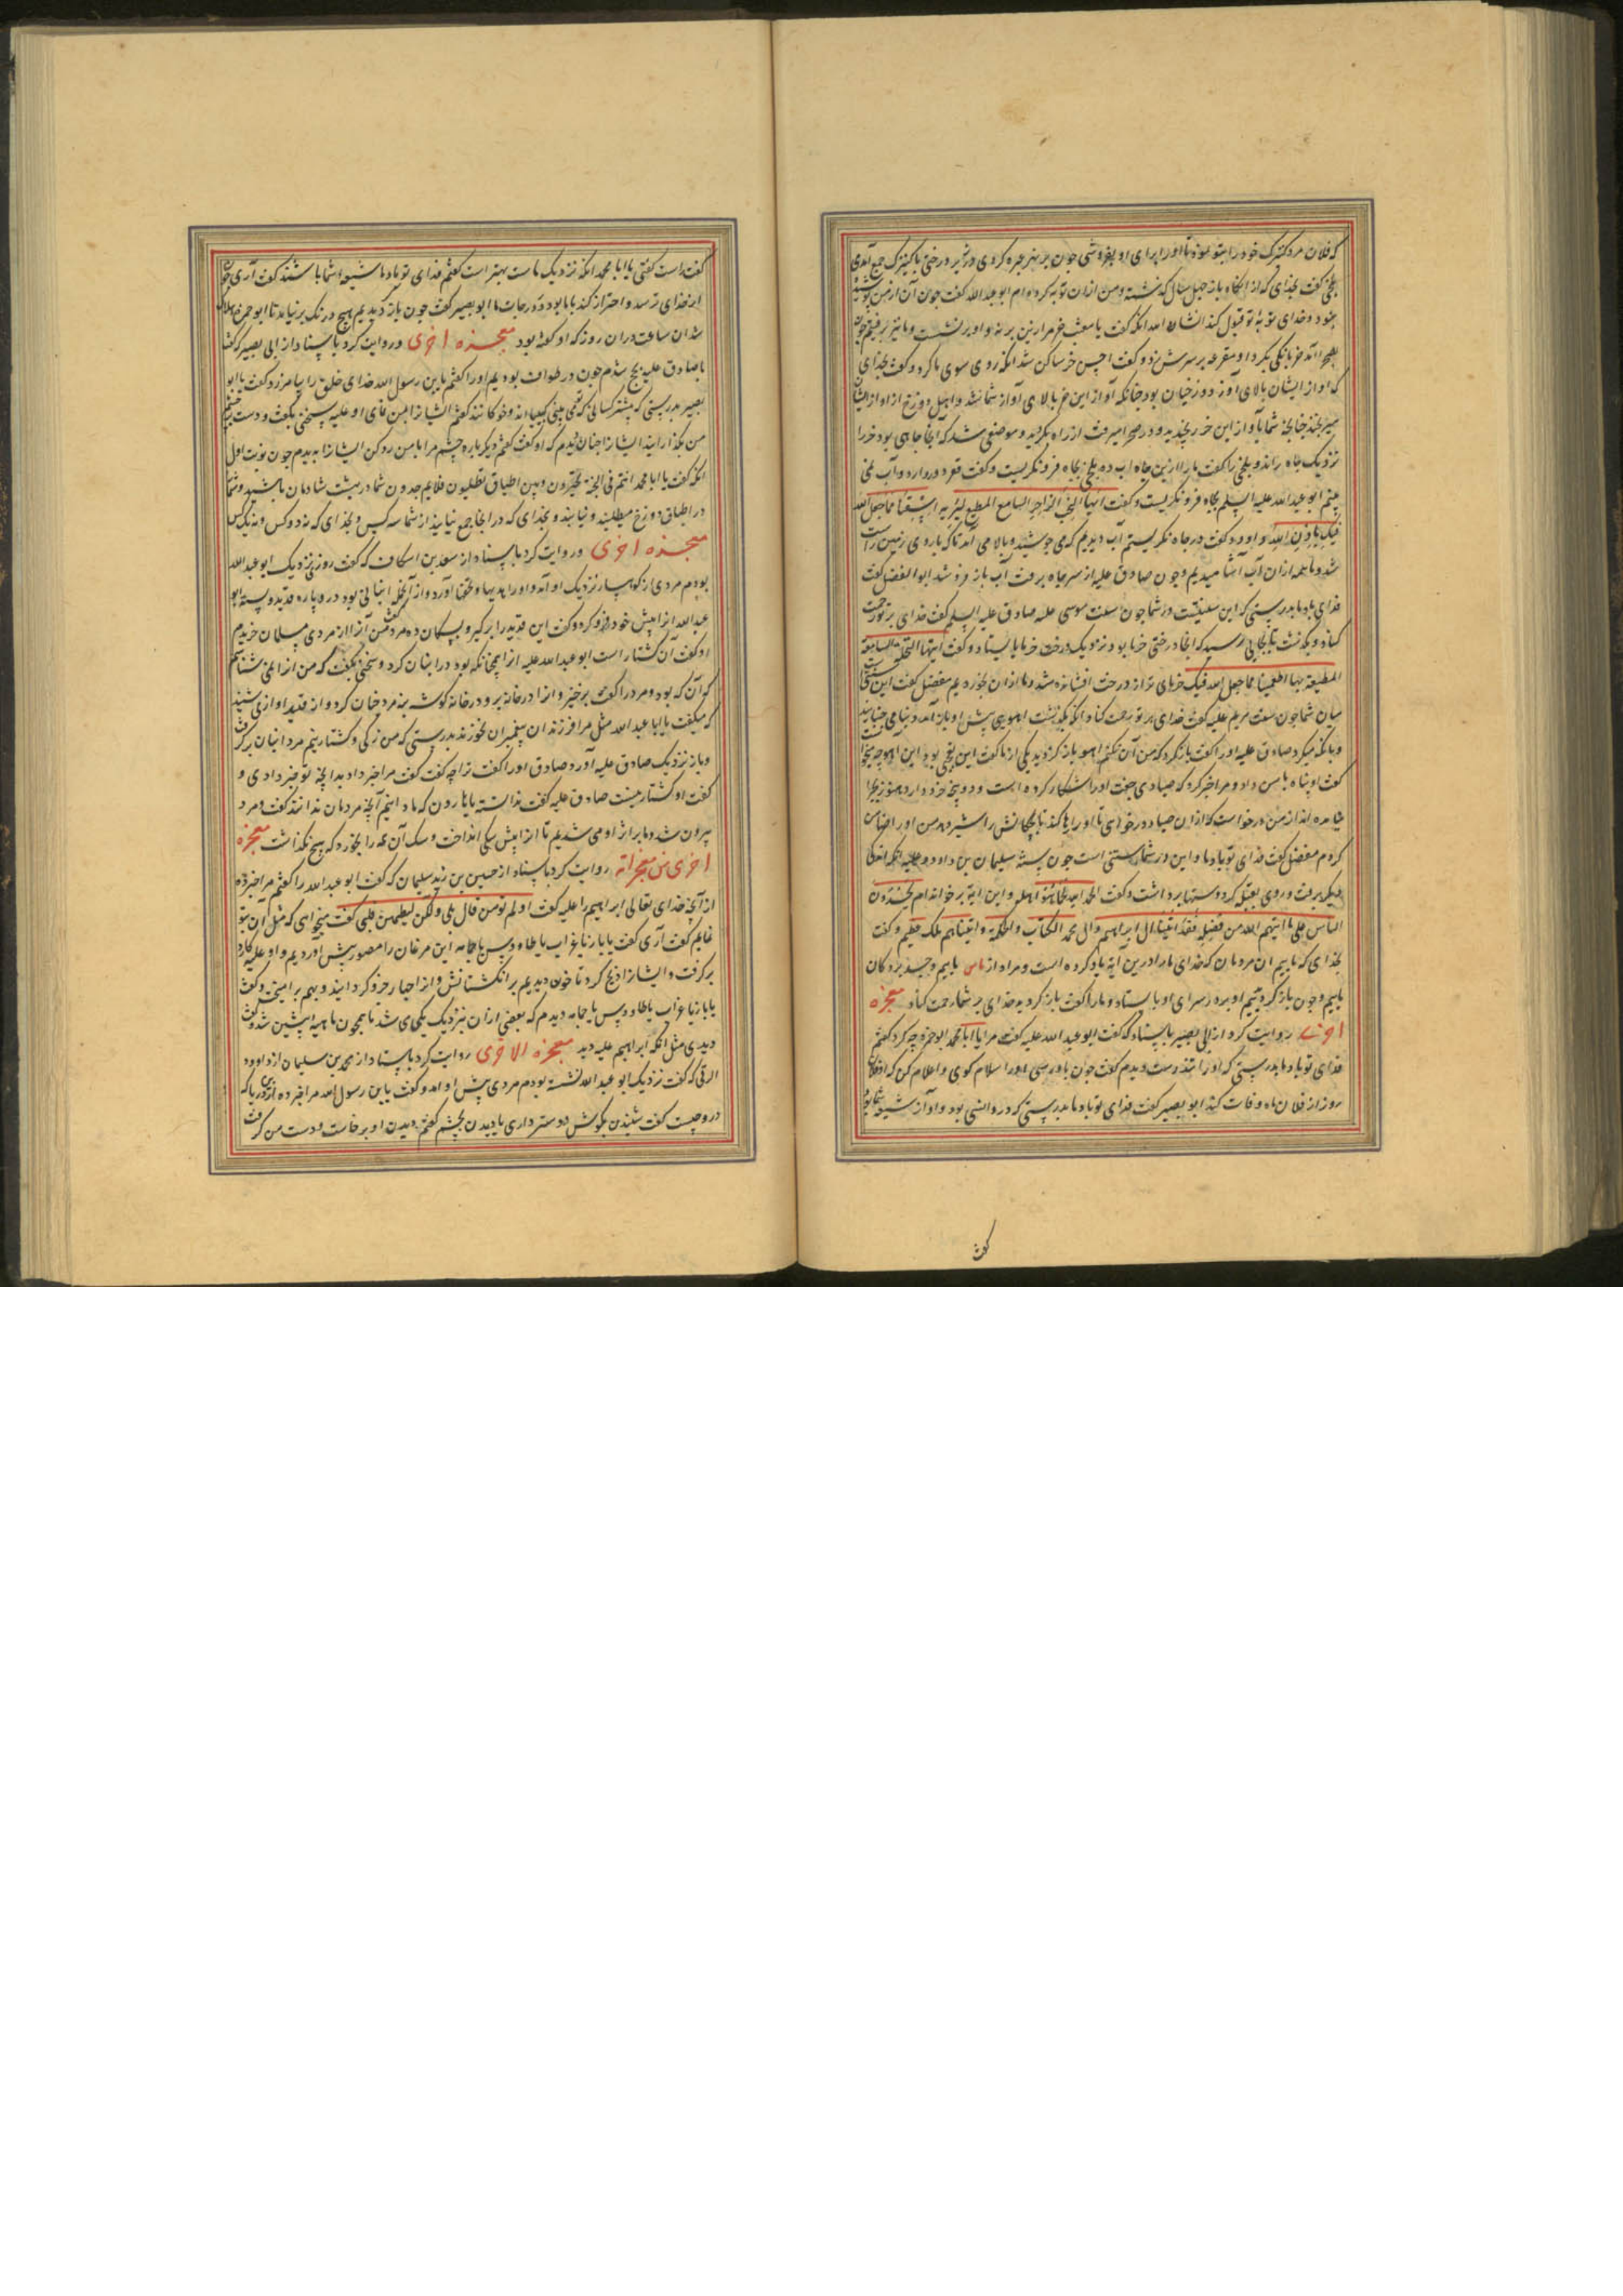 که فلان مرد کنیزک خود را بتو سپرد تا او را برای او بفروشی چون بر نهر عبره کردی در زیر درختی با کنیزک جمع آمدی
بلخی گفت بخدای که از آنگاه باز چهل سال گذشته و من ازان توبه کرده‌ام ابو عبد الله گفت چون آن از من
خود و خدای توبهٔ تو قبول کند انشاء الله آنکه گفت یا معتب خر مرا زین بر نه و او بر نشست و ما نیز برفتیم چون
بصحرا آمد خر بانگی بکرد او مقرعه بر سرش زد و گفت اخس خر ساکن شد آنکه روی سوی ما کرد و گفت بخدای
که آواز ایشان بالای آواز دوزخیان بود چنانکه آواز این خر بالای آواز شما شد و اهل دوزخ از آواز ایشان
میرنجند چنانچه شما بآواز این خر رنجیدید و در صحرا میرفت از راه بگردید و موضعی شد که آنجا چاهی بود خر را
نزدیک چاه راند و بلخی را گفت ما را ازین چاه آب ده بلخی بچاه فرو نگریست و گفت قعر دور دارد و آب نمی
بینم ابو عبد الله علیه السلم بچاه فرو نگریست و گفت ایها الجب الزاجر السامع المطیع لربه اسقنا مما جعل الله
فیک باذن الله و او گفت در چاه نگریستم آب دیدم که می جوشید و بالا می آمد تا که با روی زمین راست
شد و ما همه ازان آب آشامیدیم و چون صادق علیه از سر چاه برفت آب باز فرو شد ابو الفضل گفت
فدای تو باد ما بدرستی که این سنتیست در شما چون سنت موسی علیه صادق علیه السلم گفت خدای بر تو رحمت
کناد و بگذشت تا بجایی رسید که آنجا درختی خرما بود نزدیک درخت خرما بایستاد و گفت ایتها النخلة السامعة
المطیعة ربها اطعمینا مما جعل الله فیک خرمای تر از درخت افشانده شد و ما ازان بخوردیم مفضل گفت این سنت
میان شما چون سنت مریم علیه گفت خدای بر تو رحمت کناد آنگه بگذشت آهویی پیش او باز آمد و دنبا می جنبانید
و بانگ میکرد صادق علیه او را گفت باز گرد که من آن بکنم آهو باز گردید یکی از ما گفت این عجبی بود این آهو چه میخواست
گفت او پناه با من داد و مرا خبر کرد که صیادی جفت او را شکار کرده است و دو بچهٔ خرد دارد هنوز بچرا
نیامده‌اند از من درخواست که ازان صیاد درخواهی تا او را رها کند تا بچگانش را شیر دهد من او را ضامن
کردم مفضل گفت فدای تو باد ما و این در شما سنتی است چون سنت سلیمان بن داود علیه آنگه اندکی
دیگر برفت و روی بقبله کرد و دستها برداشت و گفت الحمد لله کما هو اهله و این آیه بر خواند ام یحسدون
الناس علی ما اتیهم الله من فضله فقد اتینا ال ابراهیم و ال محمد الکتاب و الحکمة و اتیناهم ملک عظیم و گفت
بخدای که ماییم آن مردمان که خدای ما را درین آیه یاد کرده است و مراد از ناس ماییم و حسد بردگان
ماییم و چون باز گردیدیم او بر در سرای او بایستاد و ما را گفت باز گردید خدای بر شما رحمت کناد معجزه
اخری روایت کرد از ابی بصیر باسناد که گفت ابو عبد الله علیه گفت مرا یا ابا محمد ابو حمزه چه کرد گفتم
فدای تو باد ما بدرستی که او را تندرست دیدم گفت چون باو رسی او را سلام گوی و اعلام کن که او فلان
روز از فلان ماه وفات کند ابو بصیر گفت فدای تو باد ما بدرستی که درو انسی بود و او از شیعه شما بود
گفت
گفت راست گفتی یا ابا محمد آنکه نزدیک ماست بهتر است گفتم فدای تو باد ما شیعه شما با شمااند گفت آری چون
از خدای ترسد و احتراز کند با ما بود در درجات ما ابو بصیر گفت چون باز گردیدیم هیچ درنگ بر نیامد تا ابو حمزه هلاک
شد آن ساعت دران روز که او گفته بود معجزه اخری و روایت کرد باسناد از ابی بصیر که گفت
با صادق علیه بحج شدم چون در طواف بودیم او را گفتم یا بن رسول الله خدای خلق را بیامرزد گفت یا ابا
بصیر بدرستی که بیشتر کسانی که تو می بینی کپیان‌اند و خوکانند گفتم ایشانرا بمن نمای او علیه سخنی بگفت و دست بر چشم
من بگذارانید ایشانرا چنان دیدم که او گفت گفتم دیگر باره چشم مرا با من رد کن ایشانرا بدیدم چون نوبت اول
آنکه گفت یا ابا محمد انتم فی الجنة تحبرون و بین اطباق النار تطلبون فلا توجدون شما در بهشت شادمان باشید و شما
در اطباق دوزخ میطلبند و نیابند و بخدای که در آنجا جمع نیایند از شما سه کس و بخدای که نه دو کس و نه یک کس
معجزه اخری و روایت کرد باسناد از سعد بن اسکاف که گفت روزی نزدیک ابو عبد الله
بودم مردی از کوهسار نزدیک او آمد و او را هدیها و تحفها آورد و از آنجمله انبانی بود درو پاره قدید وسته ابو
عبد الله از پیش خود فرو کرد و گفت این قدید را برگیر و بسگان ده مرد گفت من آنرا از مردی مسلمان خریدم
او گفت آن کشتار است ابو عبد الله علیه آنرا همچنانکه بود در انبان کرد و سخنی بگفت که من آنرا نمی شناسم
که آن که بود و مرد را گفت برخیز و آنرا در خانه بر و در خانه گوشه بنه مرد چنان کرد و از قدید آوازی شنید
که میگفت یا ابا عبد الله مثل مرا فرزندان پیغمبران نخورند بدرستی که من زکی و کشتار نیم مرد انبان برگرفت
و باز نزدیک صادق علیه آورد صادق او را گفت ترا چه گفت گفت مرا خبر داد بدانچه تو خبر دادی و
گفت او کشتار نیست صادق علیه گفت ندانسته یا هارون که ما دانیم آنچه مردمان ندانند گفت و مرد
بیرون شد و ما بر اثر او می شدیم تا آنرا پیش سگی انداخت و سگ آن همه را بخورد که هیچ نگذاشت معجزه
اخری من معجزاته روایت کرد باسناد از حسین بن زید سلیمان که گفت ابو عبد الله را گفتم مرا خبر ده
از آنچه خدای تعالی ابراهیم را علیه گفت اولم تؤمن قال بلی ولکن لیطمئن قلبی گفت میخواهی که مثل آن بتو
نمایم گفت آری گفت یا باز یا غراب یا طاووس یا حمامه این مرغان را مصور پیش آوردیم و او علیه کارد
برگرفت و ایشانرا ذبح کرد تا خون دیدیم بر انگشتانش و آنرا خرد گردانید و بهم برآمیخت و گفت
یا باز یا غراب یا طاووس یا حمامه دیدم که بعضی ازان بنزدیک یکی می شد تا همچون ماهیه پیشین شد و گفت
دیدی مثل آنکه ابراهیم علیه دید معجزه الاخری روایت کرد باسناد از محمد بن سلیمان از داوود
الرقی که گفت نزدیک ابو عبد الله نشسته بودم مردی پیش او آمد و گفت یا بن رسول الله مرا خبر ده ازین دریا که
درو چیست گفت شنیدن بگوش دوستر داری یا دیدن بچشم گفتم دیدن او برخاست و دست من گرفت